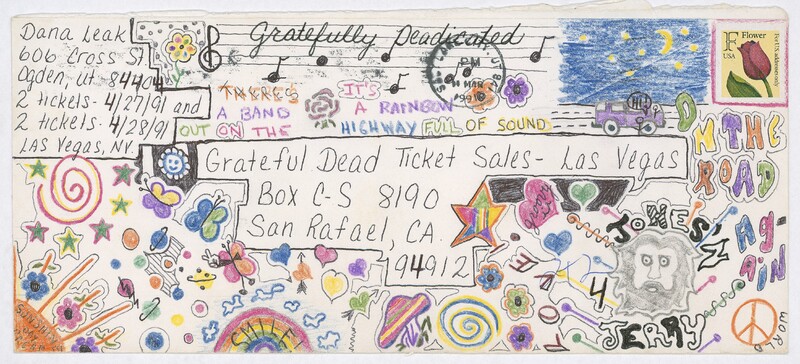 Dana Leak
606 Cross St.
Ogden, Ut 84404
2 tickets- 4/27/91 and
2 tickets- 4/28/91
LAS Vegas, NV.
Gratefully Deadicated
PM
1991
F Flower
USA
For U.S. addresses only
THERE'S
A BAND
OUT ON THE
IT'S
A RAINBOW
HIGHWAY FULL OF SOUND
HI!
Grateful Dead Ticket Sales- Las Vegas
Box C-S 8190
San Rafael, CA.
94912
ON THE
ROAD
AG-
AIN
JONES'N
4
JERRY
LOVE
WORLD
SMILE!
SUNSHINE